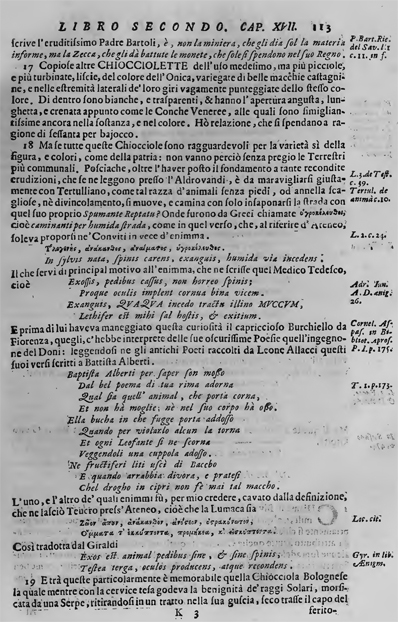 LIBRO SECONDO. CAP. XVII. 113
scrive l'eruditissimo Padre Bartoli, è, non la miniera, che gli dia sol la materia
P. Bart. Ric.
informe, ma la Zecca, che gli dà battute le monete, che sole si spendono nel suo Regno.
del Sav. l. 1
c. 11. in f.
17 Copiose altre CHIOCCIOLETTE dell'uso medesimo, ma più picciole,
e più turbinate, liscie, del colore dell'Onica, variegate di belle macchie castagni-
ne, e nelle estremità laterali de' loro giri vagamente punteggiate dello stesso co-
lore. Di dentro sono bianche, e trasparenti, & hanno l'apertura angusta, lun-
ghetta, e crenata appunto come le Conche Veneree, alle quali sono simiglian-
tissime ancora nella sostanza, e nel colore. Hò relazione, che si spendano a ra-
gione di sessanta per bajocco.
18 Ma se tutte queste Chiocciole sono ragguardevoli per la varietà sì della
figura, e colori, come della patria: non vanno perciò senza pregio le Terrestri
più communali. Posciache, oltre l'haver posto il fondamento a tante recondite
erudizioni, che se ne leggono presso l'Aldrovandi, è da maravigliarsi giusta-
L. 3. de Test.
c. 39.
mente con Tertulliano, come tal razza d'animali senza piedi, od annella sca-
Tertul. de
gliose, nè divincolamento, si muove, e camina con solo insaponarsi la strada con
animâ c. 10.
quel suo proprio Spumante Reptatu? Onde furono da Greci chiamate
cioè caminanti per humida strada, come in quel verso, che, al riferire d'Ateneo,
soleva proporsi ne' Conviti in vece d'enimma.
L. 2. c. 23.
In sylvis nata, spinis carens, exanguis, humida via incedens.
Il che servì di principal motivo all'enimma, che ne scrisse quel Medico Tedesco,
cioè
Exossis, pedibus cassus, non horreo spinis;
Proque oculis implent cornua bina vicem.
Adr. Jun.
A. D. ænig.
26.
Exanguis, QVAQVA incedo tractu illino MVCCVM,
Lethifer est mihi sal hostis, & exitium.
E prima di lui haveva maneggiato questa curiosità il capriccioso Burchiello da
Cornel. As-
pas. in Bi-
Fiorenza, quegli, c'hebbe interprete delle sue oscurissime Poësie quell'ingegno-
bliot. Apros.
ne del Doni: leggendosi ne gli antichi Poeti raccolti da Leone Allacci questi
P. 1. p. 175.
suoi versi scritti a Battista Alberti.
Baptista Alberti per saper son mosso
Dal bel poema di tua rima adorna
T. 1. p. 173.
Qual sia quell' animal, che porta corna,
Et non hà moglie: nè nel suo corpo hà osso.
Ella bucha in che fugge porta addosso
Quando per violarlo alcun la torna
Et ogni Leofante si ne scorna
Veggendoli una cuppola adosso.
Ne fructiferi liti uscì di Baccho
E quando arrabbia divora, e pratesi
Chel drogho in cipri non fè mai tal maccho.
L'uno, e l'altro de' quali enimmi fù, per mio credere, cavato dalla definizione,
che ne lasciò Teucro press'Ateneo, cioè che la Lumaca sia
Loc. cit.
Così tradotta dal Giraldi
Exos est animal pedibus sine, & sine spinis;
Gyr. in lib.
Ænigm.
Testea terga, oculos producens, atque recondens.
19 E trà queste particolarmente è memorabile quella Chiocciola Bolognese
la quale mentre con la cervice tesa godeva la benignità de' raggi Solari, morsi-
cata da una Serpe, ritirandosi in un tratto nella sua guscia, feco trasse il capo del
K 3
ferito-